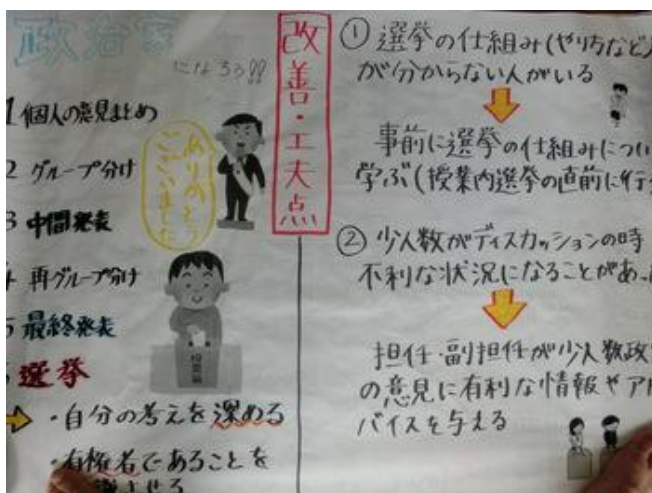 政治家
になろう!!
1 個人の意見まとめ
2 グループ分け
3 中間発表
4 再グループ分け
5 最終発表
選挙
⇨・自分の考えを深める
・有権者であることを
させる
ありがとう
ございました
投票箱
改善・工夫点
① 選挙の仕組み(やり方など)
が分からない人がいる
事前に選挙の仕組みについ
学ぶ(授業内選挙の直前に行
② 少人数がディスカッションの時
不利な状況になることがあっ
担任・副担任が少人数政
の意見に有利な情報やア
バイスを与える